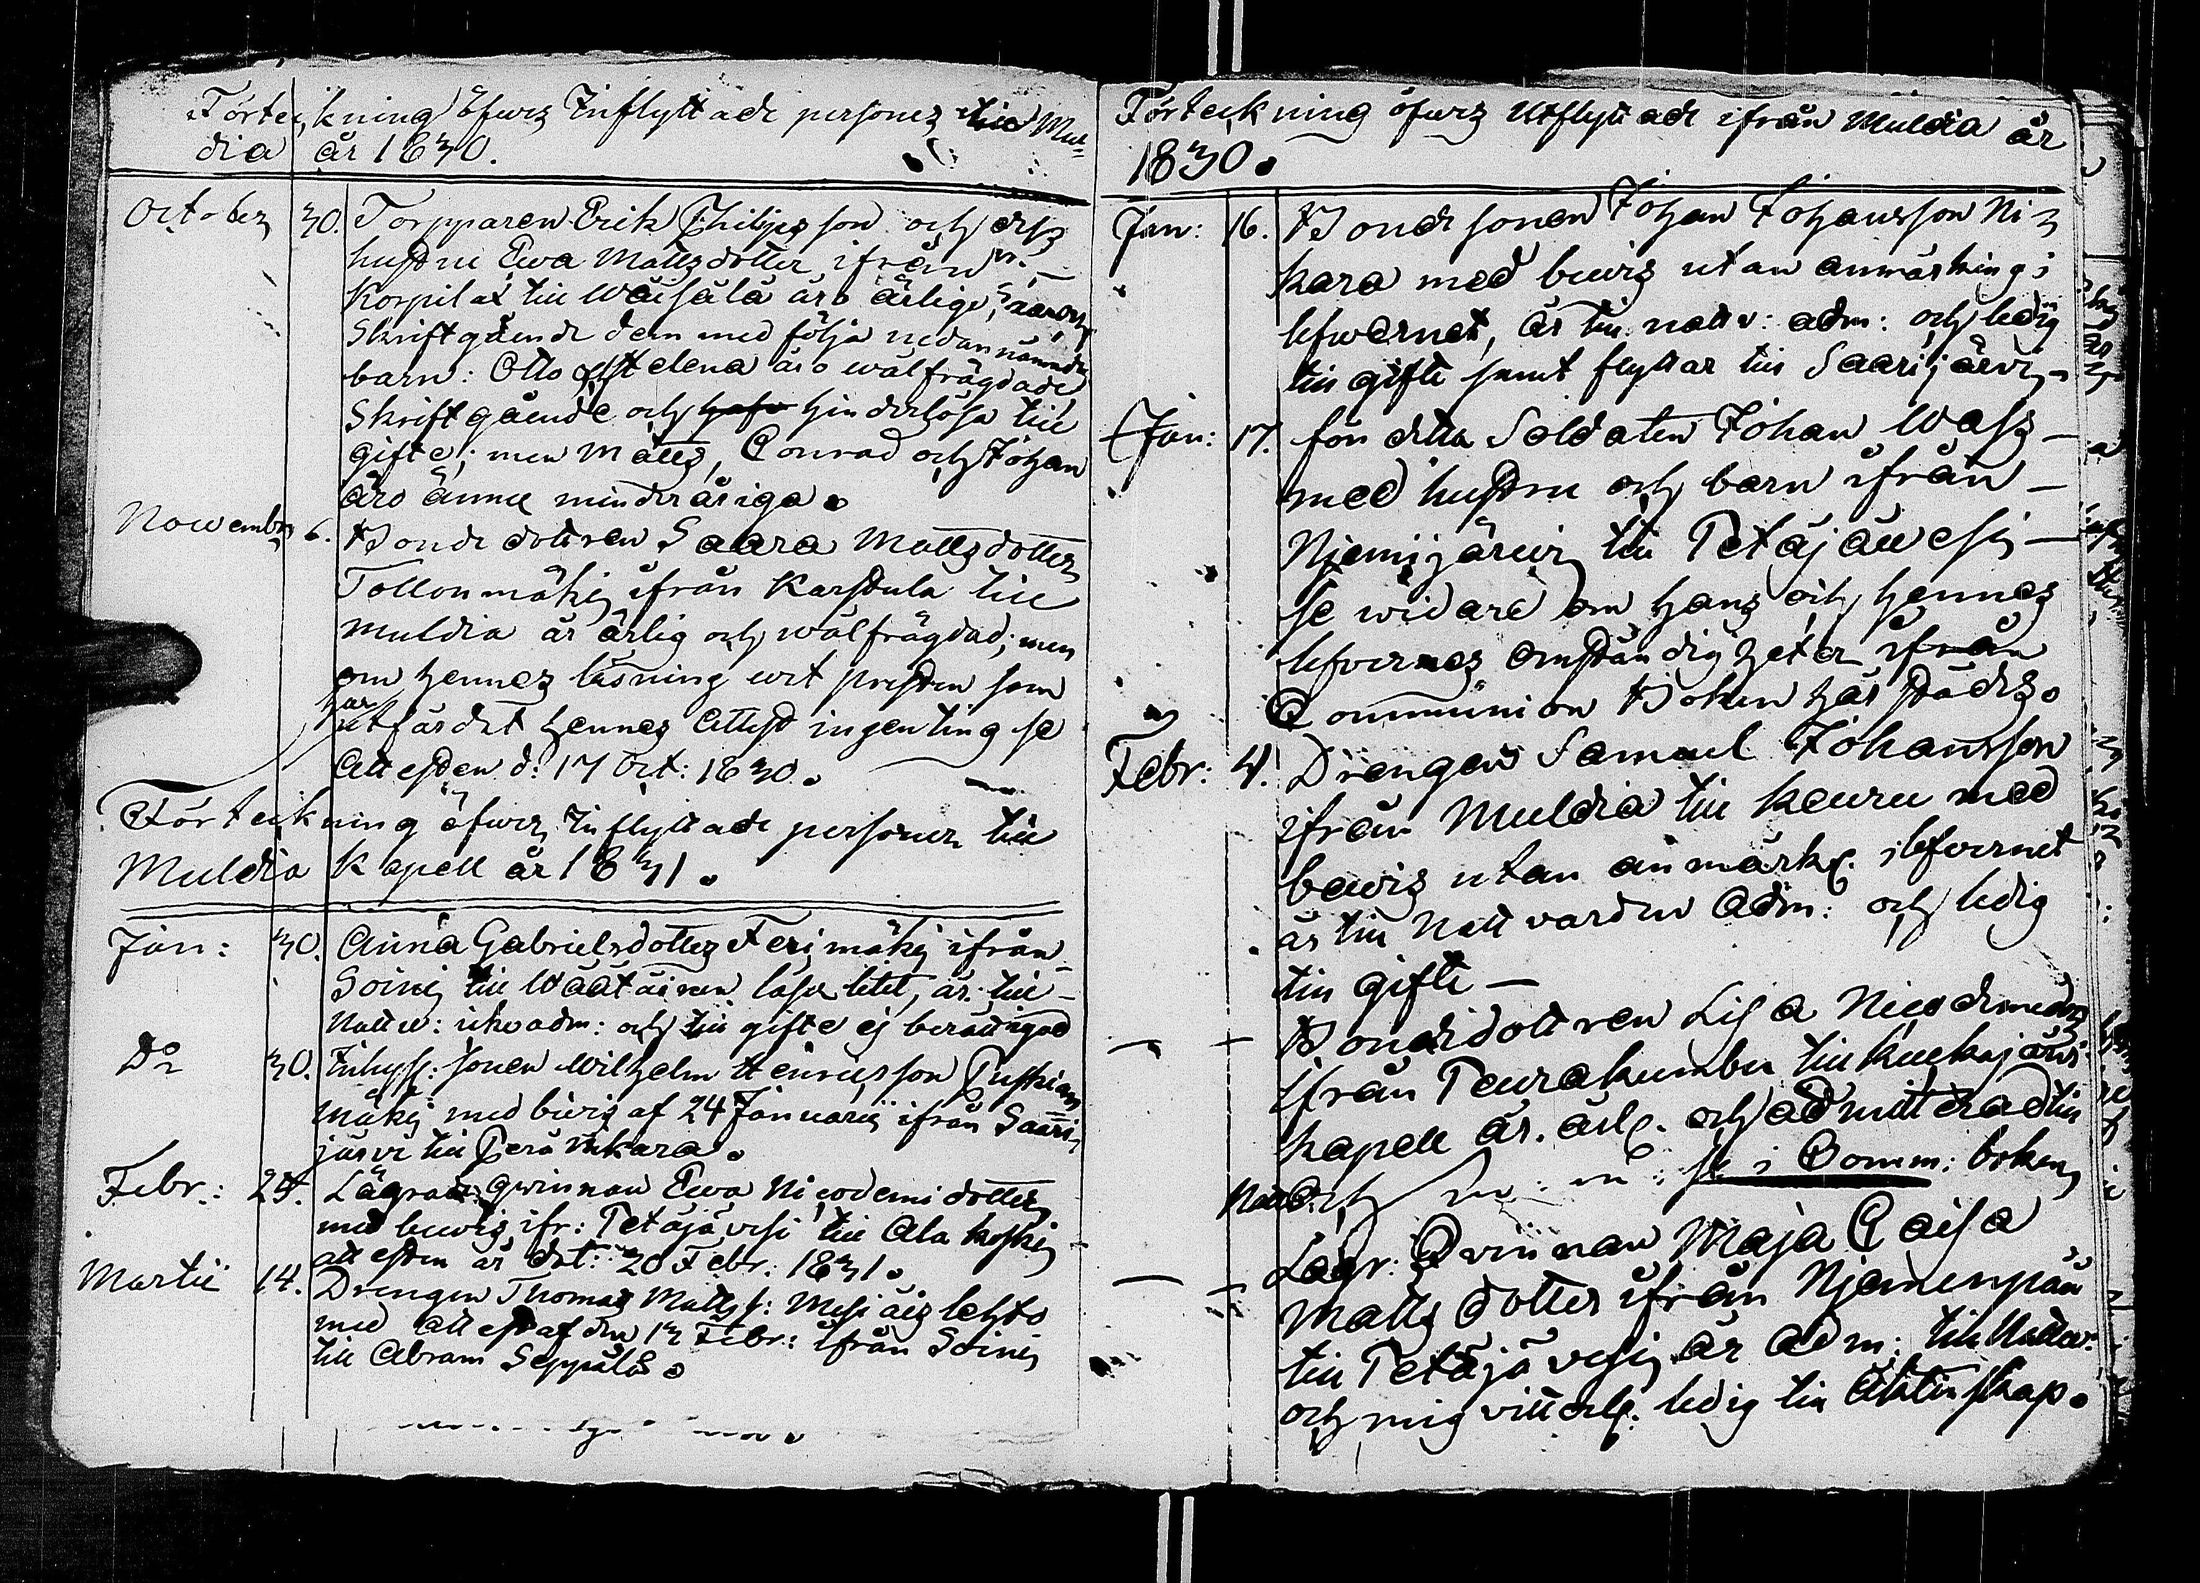 Förteckning öfwer Inflyttade personer till Mul=
dia år 1830.
October 30. Torpparen Erik Philipsson och dess
hustru Ewa Mattsdotter ifrån
Korpilax till Wäisälä äro ärlige,
Skriftgående dem med följa nedannämnde
barn: Otto och Helena äro wälfrägdade
Skriftgående och hafw hinderlösa till
gifte; men Matts, Conrad och Johan
äro ännu minderåriga.
Nowember 6. Bonde dottren Saara Mattsdotter
Tollonmäki ifrån Karstula till
Muldia är ärlig och wälfrägdad; men
om hennes läsning wet presten som
har
utfärdat hennes Attest ingenting se
Attesten d: 17 Oct: 1830.
Förteckning öfwer Inflyttade personer till
Muldia Kapell år 1831.
Jan: 30. Anna Gabrielsdotter Ferjmäki ifrån
Soini till Wäätäinen läser litet, är till
Nattv: icke adm: och till gifte ej berättigad
Do 30. Inhys: sonen Wilhelm Henricsson
mäki med bewis af 24 Januarii ifrån Saari
järvi till Perä Inkara.
Febr: 24. Lägrade qwinnan Ewa Nicodemi dotter
med bewis ifr: Petäjävesi till Ala koski
attesten är dat: 20 Febr: 1831.
Martii 14. Drengen Thomas Matts s: lehto
med attest af den 13 Febr: ifrån Soini
till Abram Seppälä.
Förteckning öfwer Utflyttade ifrån Muldia år
1830.
Jan: 16. Bonde sonen Johan Johansson Ni
kara med bewis utan anmärkning i
lefwernet, är till nattv: adm: och ledig
till gifte samt flyttar till Saarijärvi
Jan: 17. förra detta Soldaten Johan Wass
med hustru och barn ifrån
Njemijärwi till Petäjäwesi
se widare om hans och hennes
lefvernes omständigheter ifrån
Communion Boken härstädes.
Febr: 4. Drengen Samuel Johansson
ifrån Muldia till Keuru med
bewis utan anmärk. i lefvernet
är till Nattvarden Adm: och ledig
till gifte —
— — Bondedottren Lisa Nicodimedr
ifrån Peurakumbu till Kuckajärvi
kapell är ärl. och admitterad till
Nattv. och se i Comm: boken
— — Lägr: Qvinnan Maja Caisa
Mattsdotter ifrån Njemenpää
till Petäjävesi är adm: till Nattv.
och mig vitterl. ledig till Äktenskap.